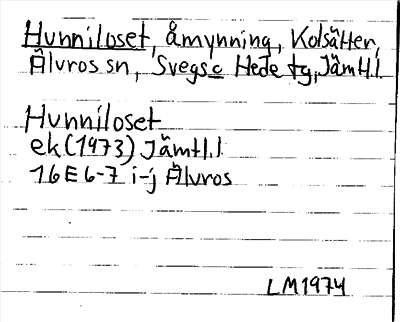 Hunniloset, åmynning, Kolsätter,
Älvros sn, Svegs o Hede tg, Jämtl.l
Hunniloset
ek (1973) Jämtl.l
16E 6-7 i-j Älvros
LM1974